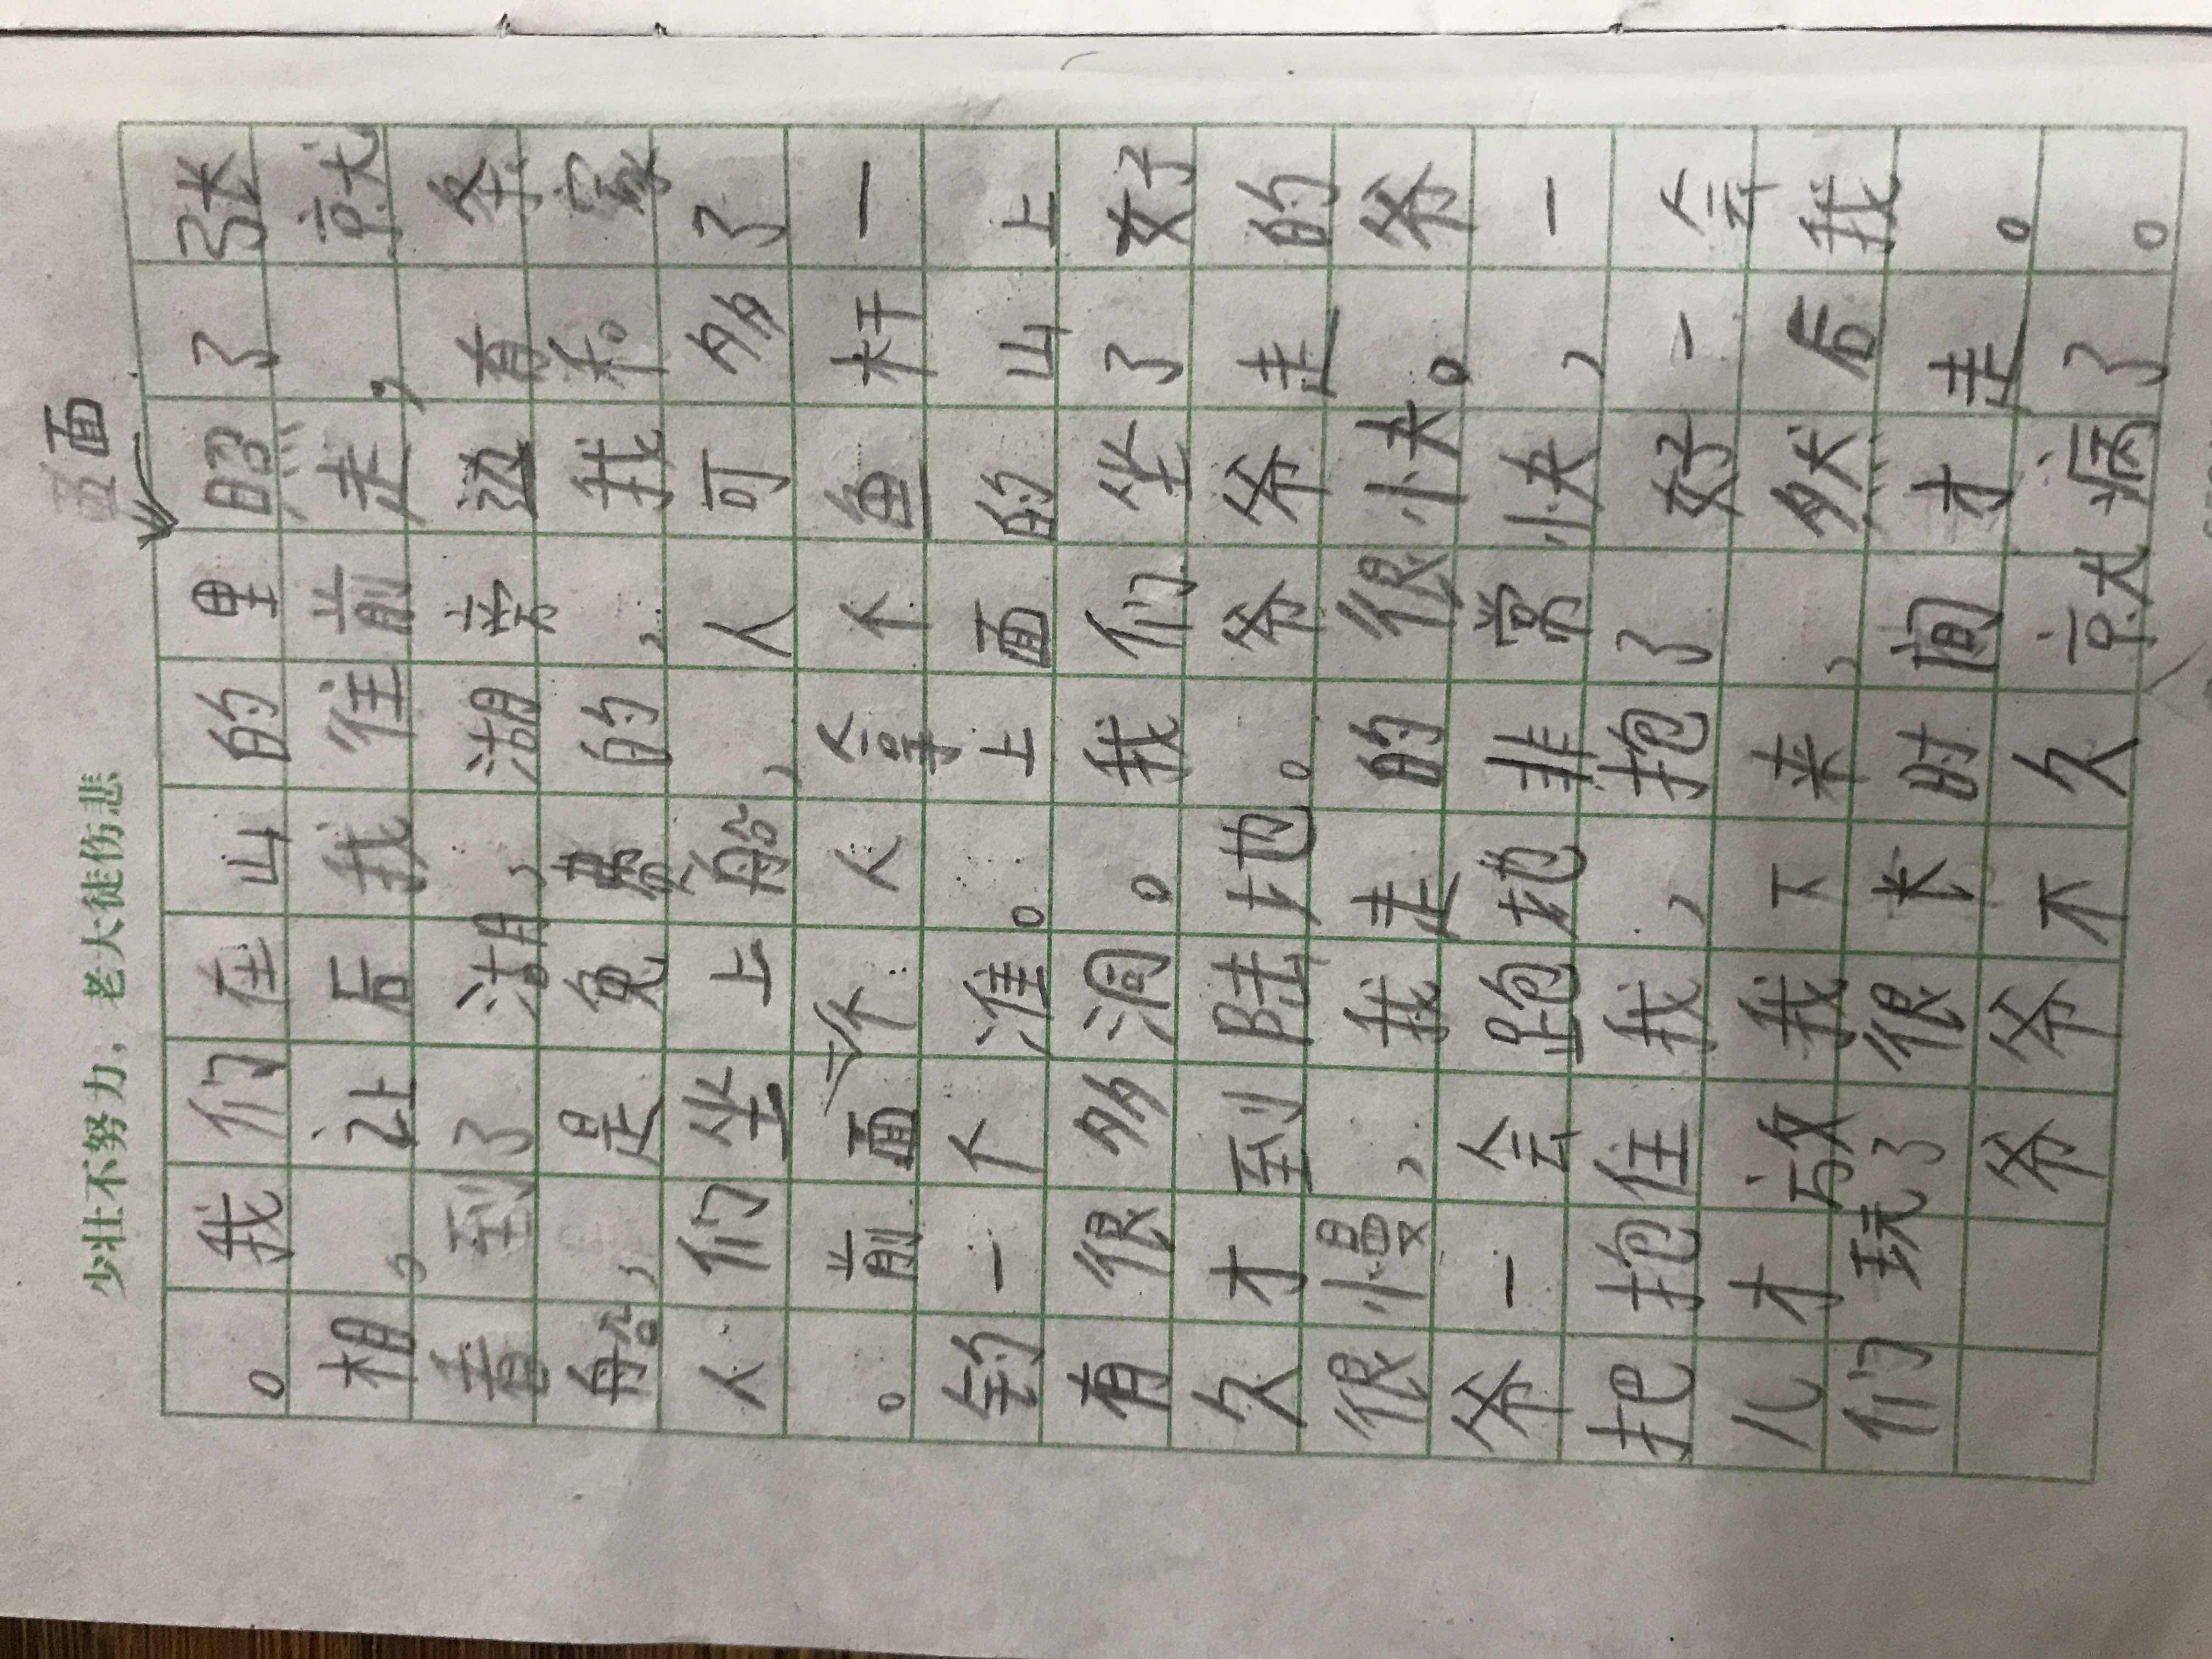 少壮不努力，老大徒伤悲
面
。我们在山的里照了张
相，让后我往前走，就
看到了湖，湖旁边有条
船，是免票的，我和家
人们坐上船，人可多了
。前面一个人拿个鱼杆一
钓一个准。上面的山上
有很多洞。我们坐了好
久才到陆地。爷爷走的
很慢，我走的很快。爷
爷一会跑地非常快，一
把抱住我，抱了好一会
儿才放我下来，然后我
们玩了很长时间才走。
爷爷不久就病了。